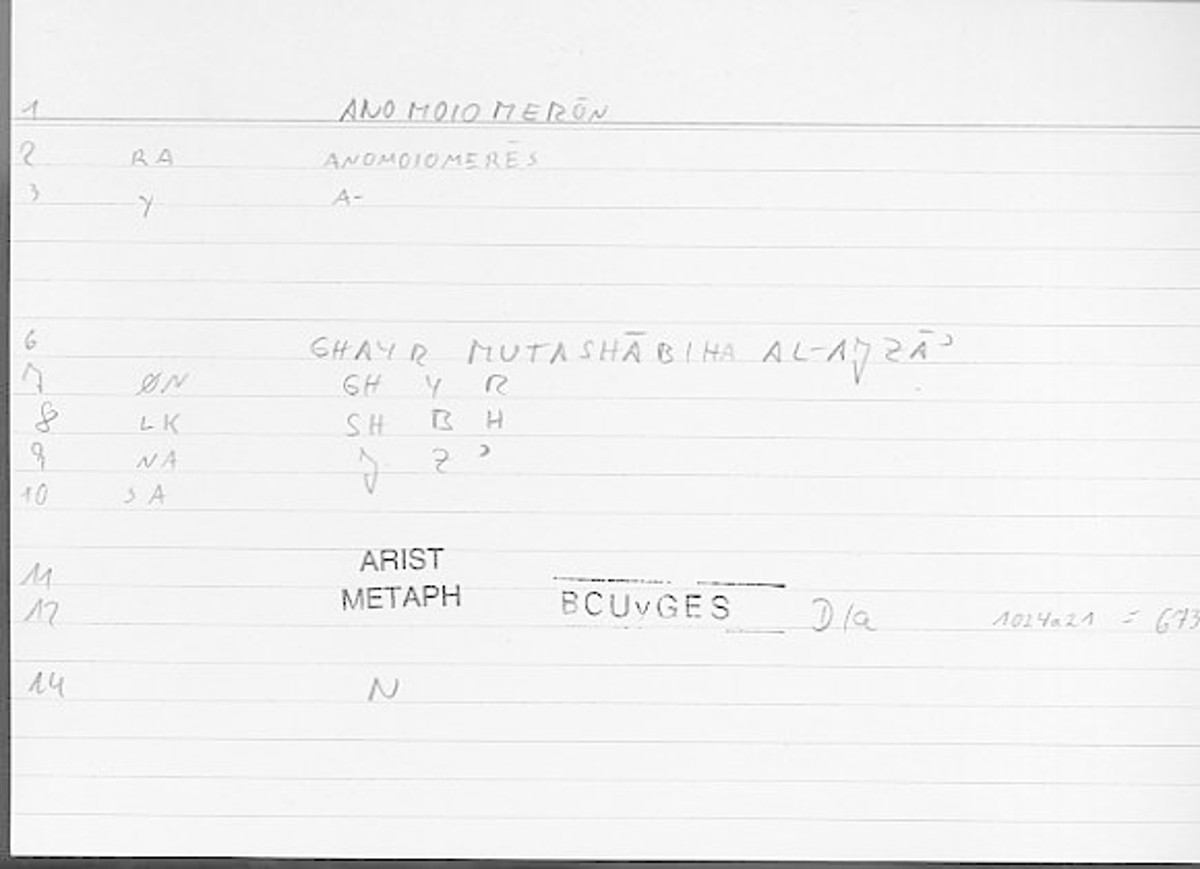 1 ANOMOIOMERŌN
2 RA ANOMOIOMERĒS
3 Y A-
6 GHAYR MUTASHĀBIHA AL-AJZĀʾ
7 ØN GH Y R
8 LK SH B H
9 NA J Z ʾ
10 SA
11 ARIST
12 METAPH BCUvGES D/a 1024a21 = 673
14 N